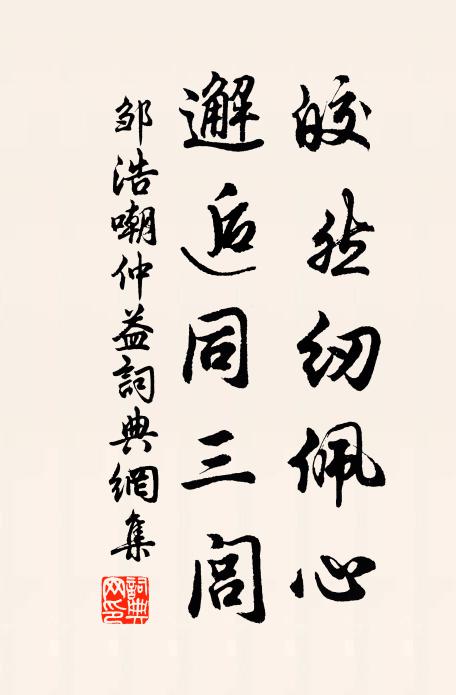 皎然紉佩心
邂逅同三閭
鄒浩嘲仲益詞典網集
詞典網印